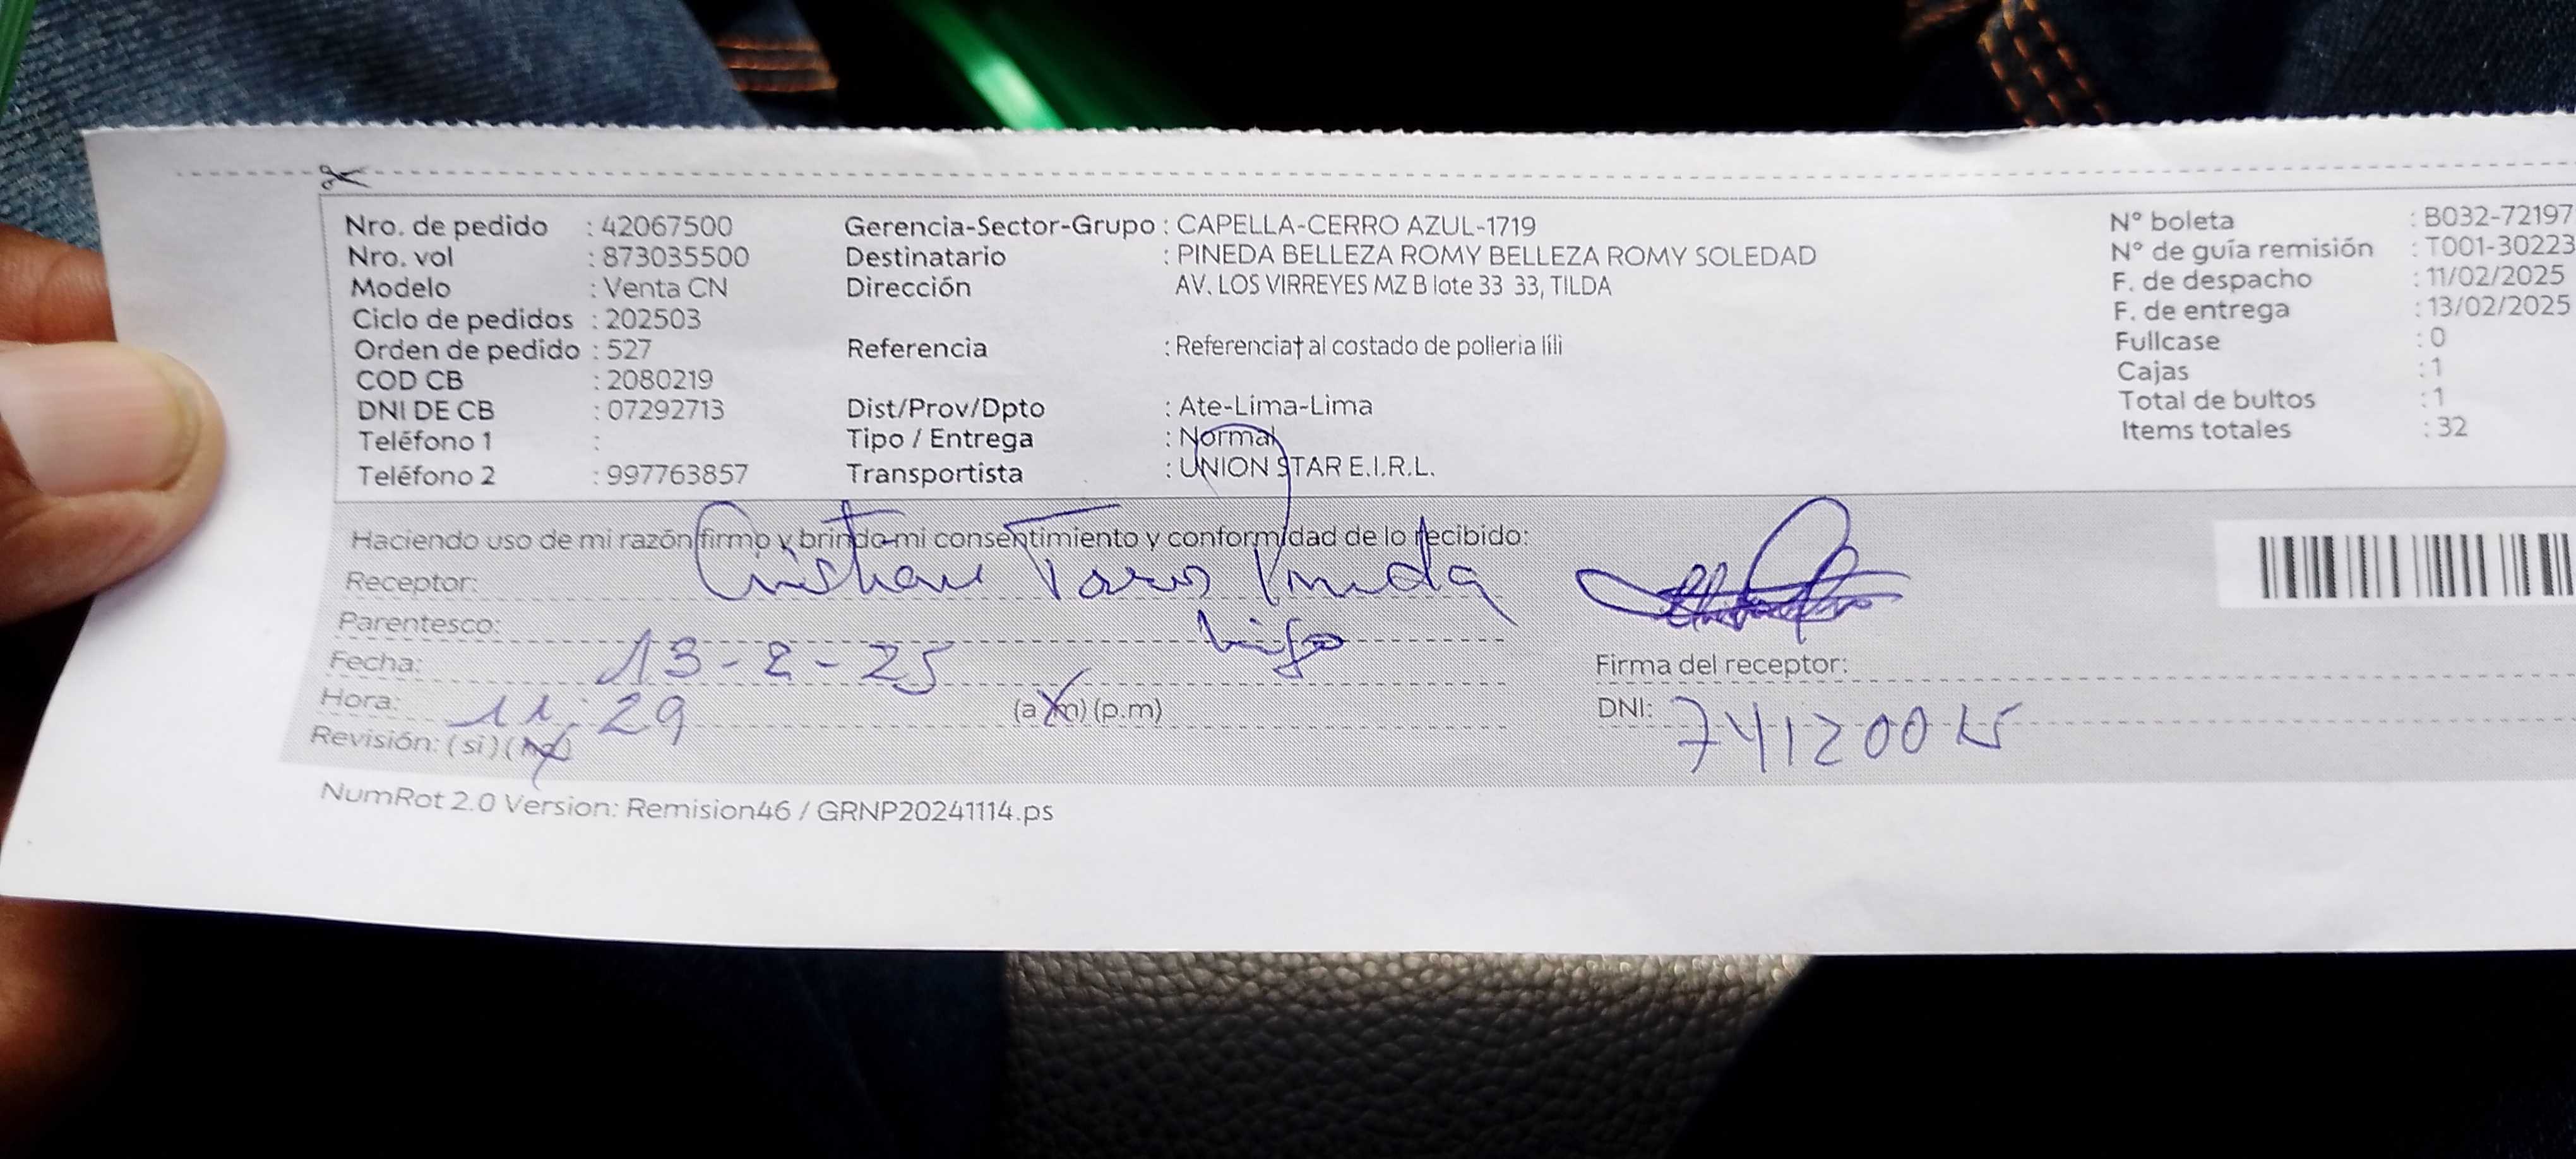 Nro. de pedido : 42067500 Gerencia-Sector-Grupo : CAPELLA-CERRO AZUL-1719 N° boleta : B032-72197
Nro. vol : 873035500 Destinatario : PINEDA BELLEZA ROMY BELLEZA ROMY SOLEDAD N° de guía remisión : T001-30223
Modelo : Venta CN Dirección AV. LOS VIRREYES MZ B lote 33 33, TILDA F. de despacho : 11/02/2025
Ciclo de pedidos : 202503 F. de entrega : 13/02/2025
Orden de pedido : 527 Referencia : Referencia† al costado de polleria lili Fullcase : 0
COD CB : 2080219 Cajas : 1
DNI DE CB : 07292713 Dist/Prov/Dpto : Ate-Lima-Lima Total de bultos : 1
Teléfono 1 : Tipo / Entrega : Normal Items totales : 32
Teléfono 2 : 997763857 Transportista : UNION STAR E.I.R.L.
Haciendo uso de mi razón firmo y brindo mi consentimiento y conformidad de lo recibido:
Receptor: Cristhian Pineda
Parentesco: hijo
Fecha: 13-2-25 Firma del receptor:
Hora: 11:29 (a.m) (p.m) DNI: 74120015
Revisión: (si) (no)
NumRot 2.0 Version: Remision46 / GRNP20241114.ps